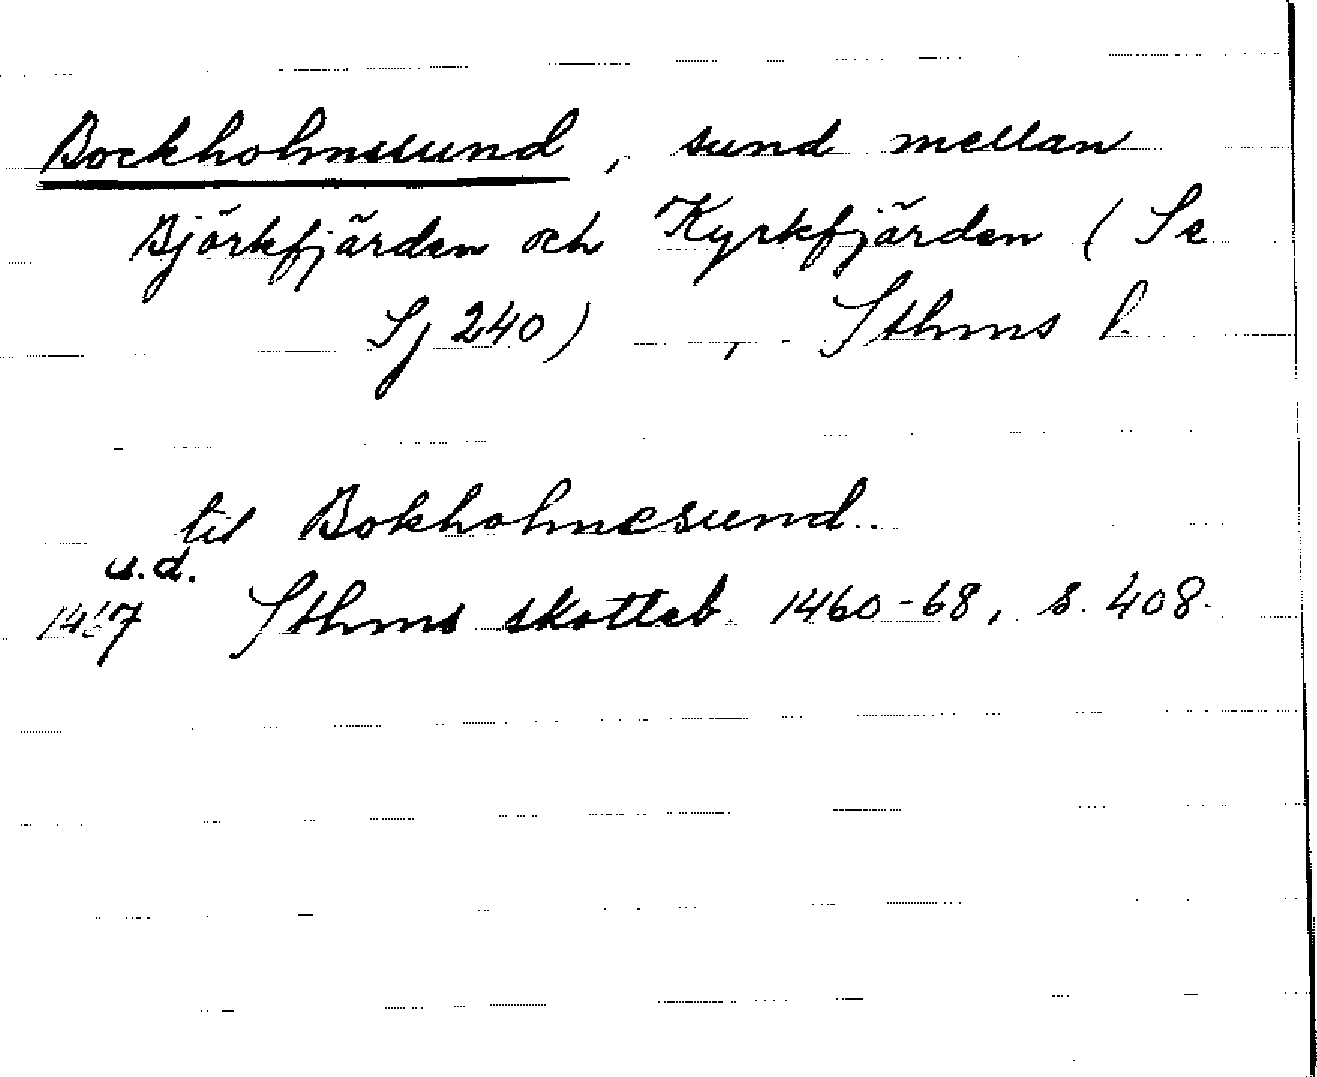 Bockholmssund, sund mellan
Björkfjärden och Kyrkfjärden (Se
Sj 240), Sthms l.
til Bokholmesund.
u.d.
Sthms skotteb 1460-68, s. 408.